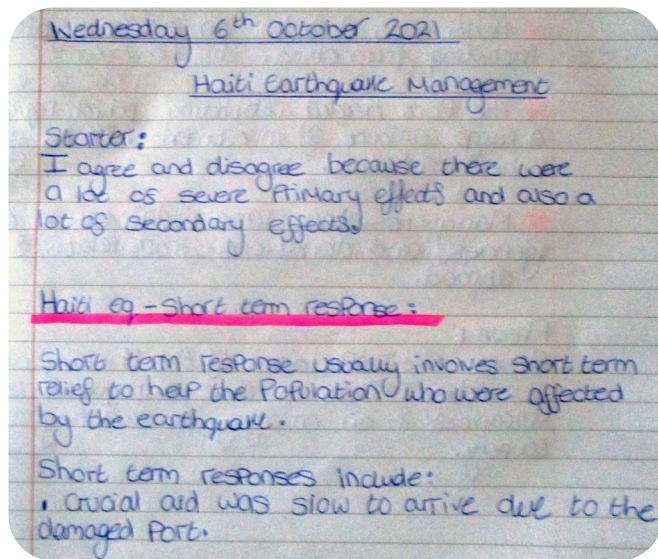 Wednesday 6th October 2021
Haiti Earthquake Management
Starter:
I agree and disagree because there were
a lot of severe Primary effects and also a
lot of secondary effects.
Haiti eq - Short term response:
Short term response usually involves short term
relief to help the Population who were affected
by the earthquake.
Short term responses include:
• Crucial aid was slow to arrive due to the
damaged Port.